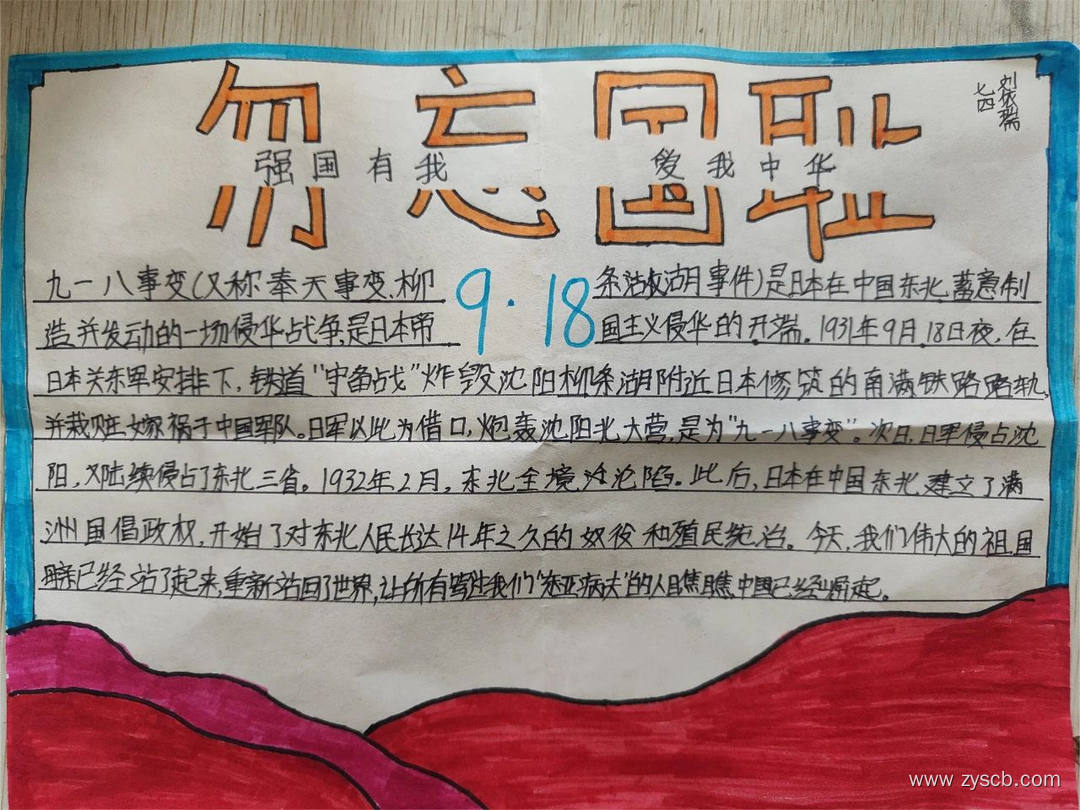 勿忘国耻
强国有我 爱我中华
七四
刘依瑞
九一八事变(又称奉天事变、柳 9·18 条湖事件)是日本在中国东北蓄意制
造并发动的一场侵华战争,是日本帝 国主义侵华的开端。1931年9月18日夜,在
日本关东军安排下,铁道"守备战"炸毁沈阳柳条湖附近日本修筑的南满铁路路轨,
并栽赃嫁祸于中国军队。日军以此为借口,炮轰沈阳北大营,是为"九一八事变"。次日,日军侵占沈
阳,又陆续侵占了东北三省。1932年2月,东北全境沦陷。此后,日本在中国东北建立了满
洲国倡政权,开始了对东北人民长达14年之久的奴役和殖民统治。今天,我们伟大的祖国
已经站了起来,重新站回了世界,让所有骂我们"东亚病夫"的人瞧瞧,中国已经崛起。
www.zyscb.com